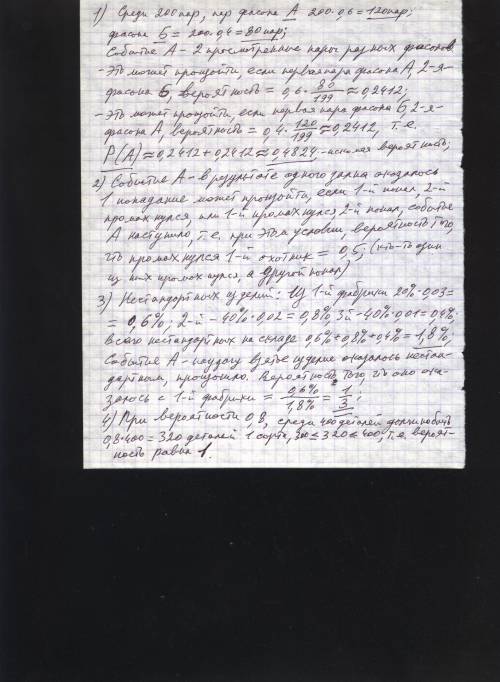 1) Среди 200 пар, пар фасона А 200·0,6=120 пар;
фасона Б = 200·0,4=80 пар;
Событие А - 2 просмотренные пары разных фасонов
- Это может произойти, если первая пара фасона А, 2-я -
фасона Б, вероятность = 0,6·80/199≈0,2412;
- Это может произойти, если первая пара фасона Б, 2-я -
фасона А, вероятность = 0,4·120/199≈0,2412, т.е.
Р(А)≈0,2412+0,2412≈0,4824 - искомая вероятность;
2) Событие А - в результате одного залпа оказалось
1 попадание может произойти, если 1-й попал, 2-й
промахнулся, или 1-й промахнулся 2-й попал, событие
А наступило, т.е. при этом условии вероятность того,
что промахнулся 1-й охотник = 0,5, (кто-то один
из них промахнулся, а другой попал)
3) Нестандартных изделий: Из 1-й фабрики 20%·0,03=
= 0,6%, 2-й - 40%·0,02=0,8%, 3й - 40%·0,01=0,4%,
всего нестандартных на складе 0,6%+0,8%+0,4%=1,8%,
Событие А - наудачу взятое изделие оказалось нестан-
дартным, произошло. Вероятность того, что оно ока-
залось с 1-й фабрики = 0,6%/1,8% = 1/3;
4) При вероятности 0,8, среди 400 деталей должно быть
0,8·400=320 деталей 1 сорта, 300≤320≤400, т.е. вероят-
ность равна 1.